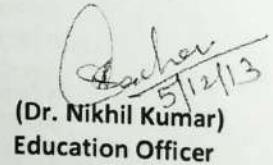 5/12/13
(Dr. Nikhil Kumar)
Education Officer